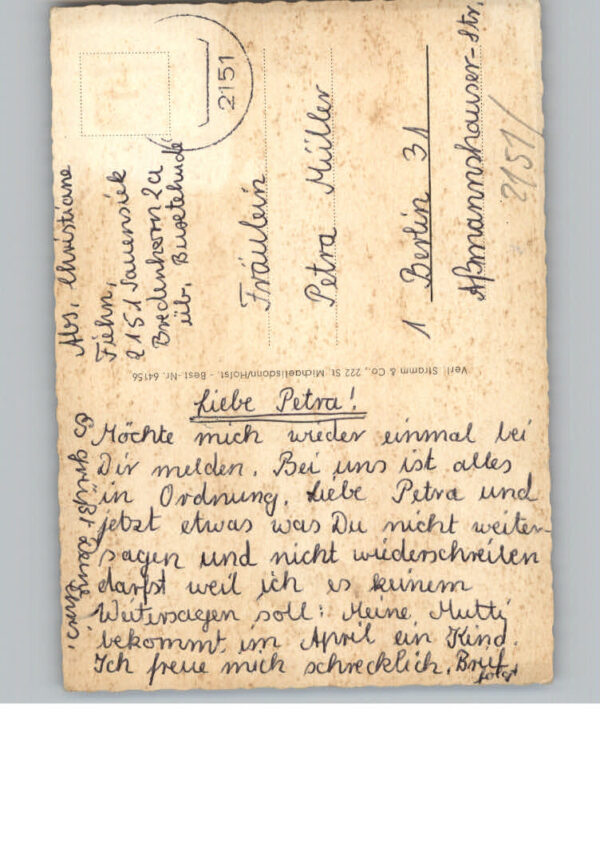 Abs. Christiane
Fiehn,
2151 Sauensiek
Bredenhorn 2a
üb. Buxtehude
2151
Fräulein
Petra Müller
1 Berlin 31
Aßmannshauser-Str.
2151/
Verl. Stramm & Co., 222 St. Michaelisdonn/Holst. - Best.-Nr. 64156
Liebe Petra!
Möchte mich wieder einmal bei
Dir melden. Bei uns ist alles
in Ordnung. Liebe Petra und
jetzt etwas was Du nicht weiter-
sagen und nicht wiederschreiben
darfst weil ich es keinem
Weitersagen soll: Meine Mutti
bekommt im April ein Kind.
Ich freue mich schrecklich. Brief
folgt
Es grüßt Deine